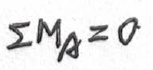 ΣM_A = 0